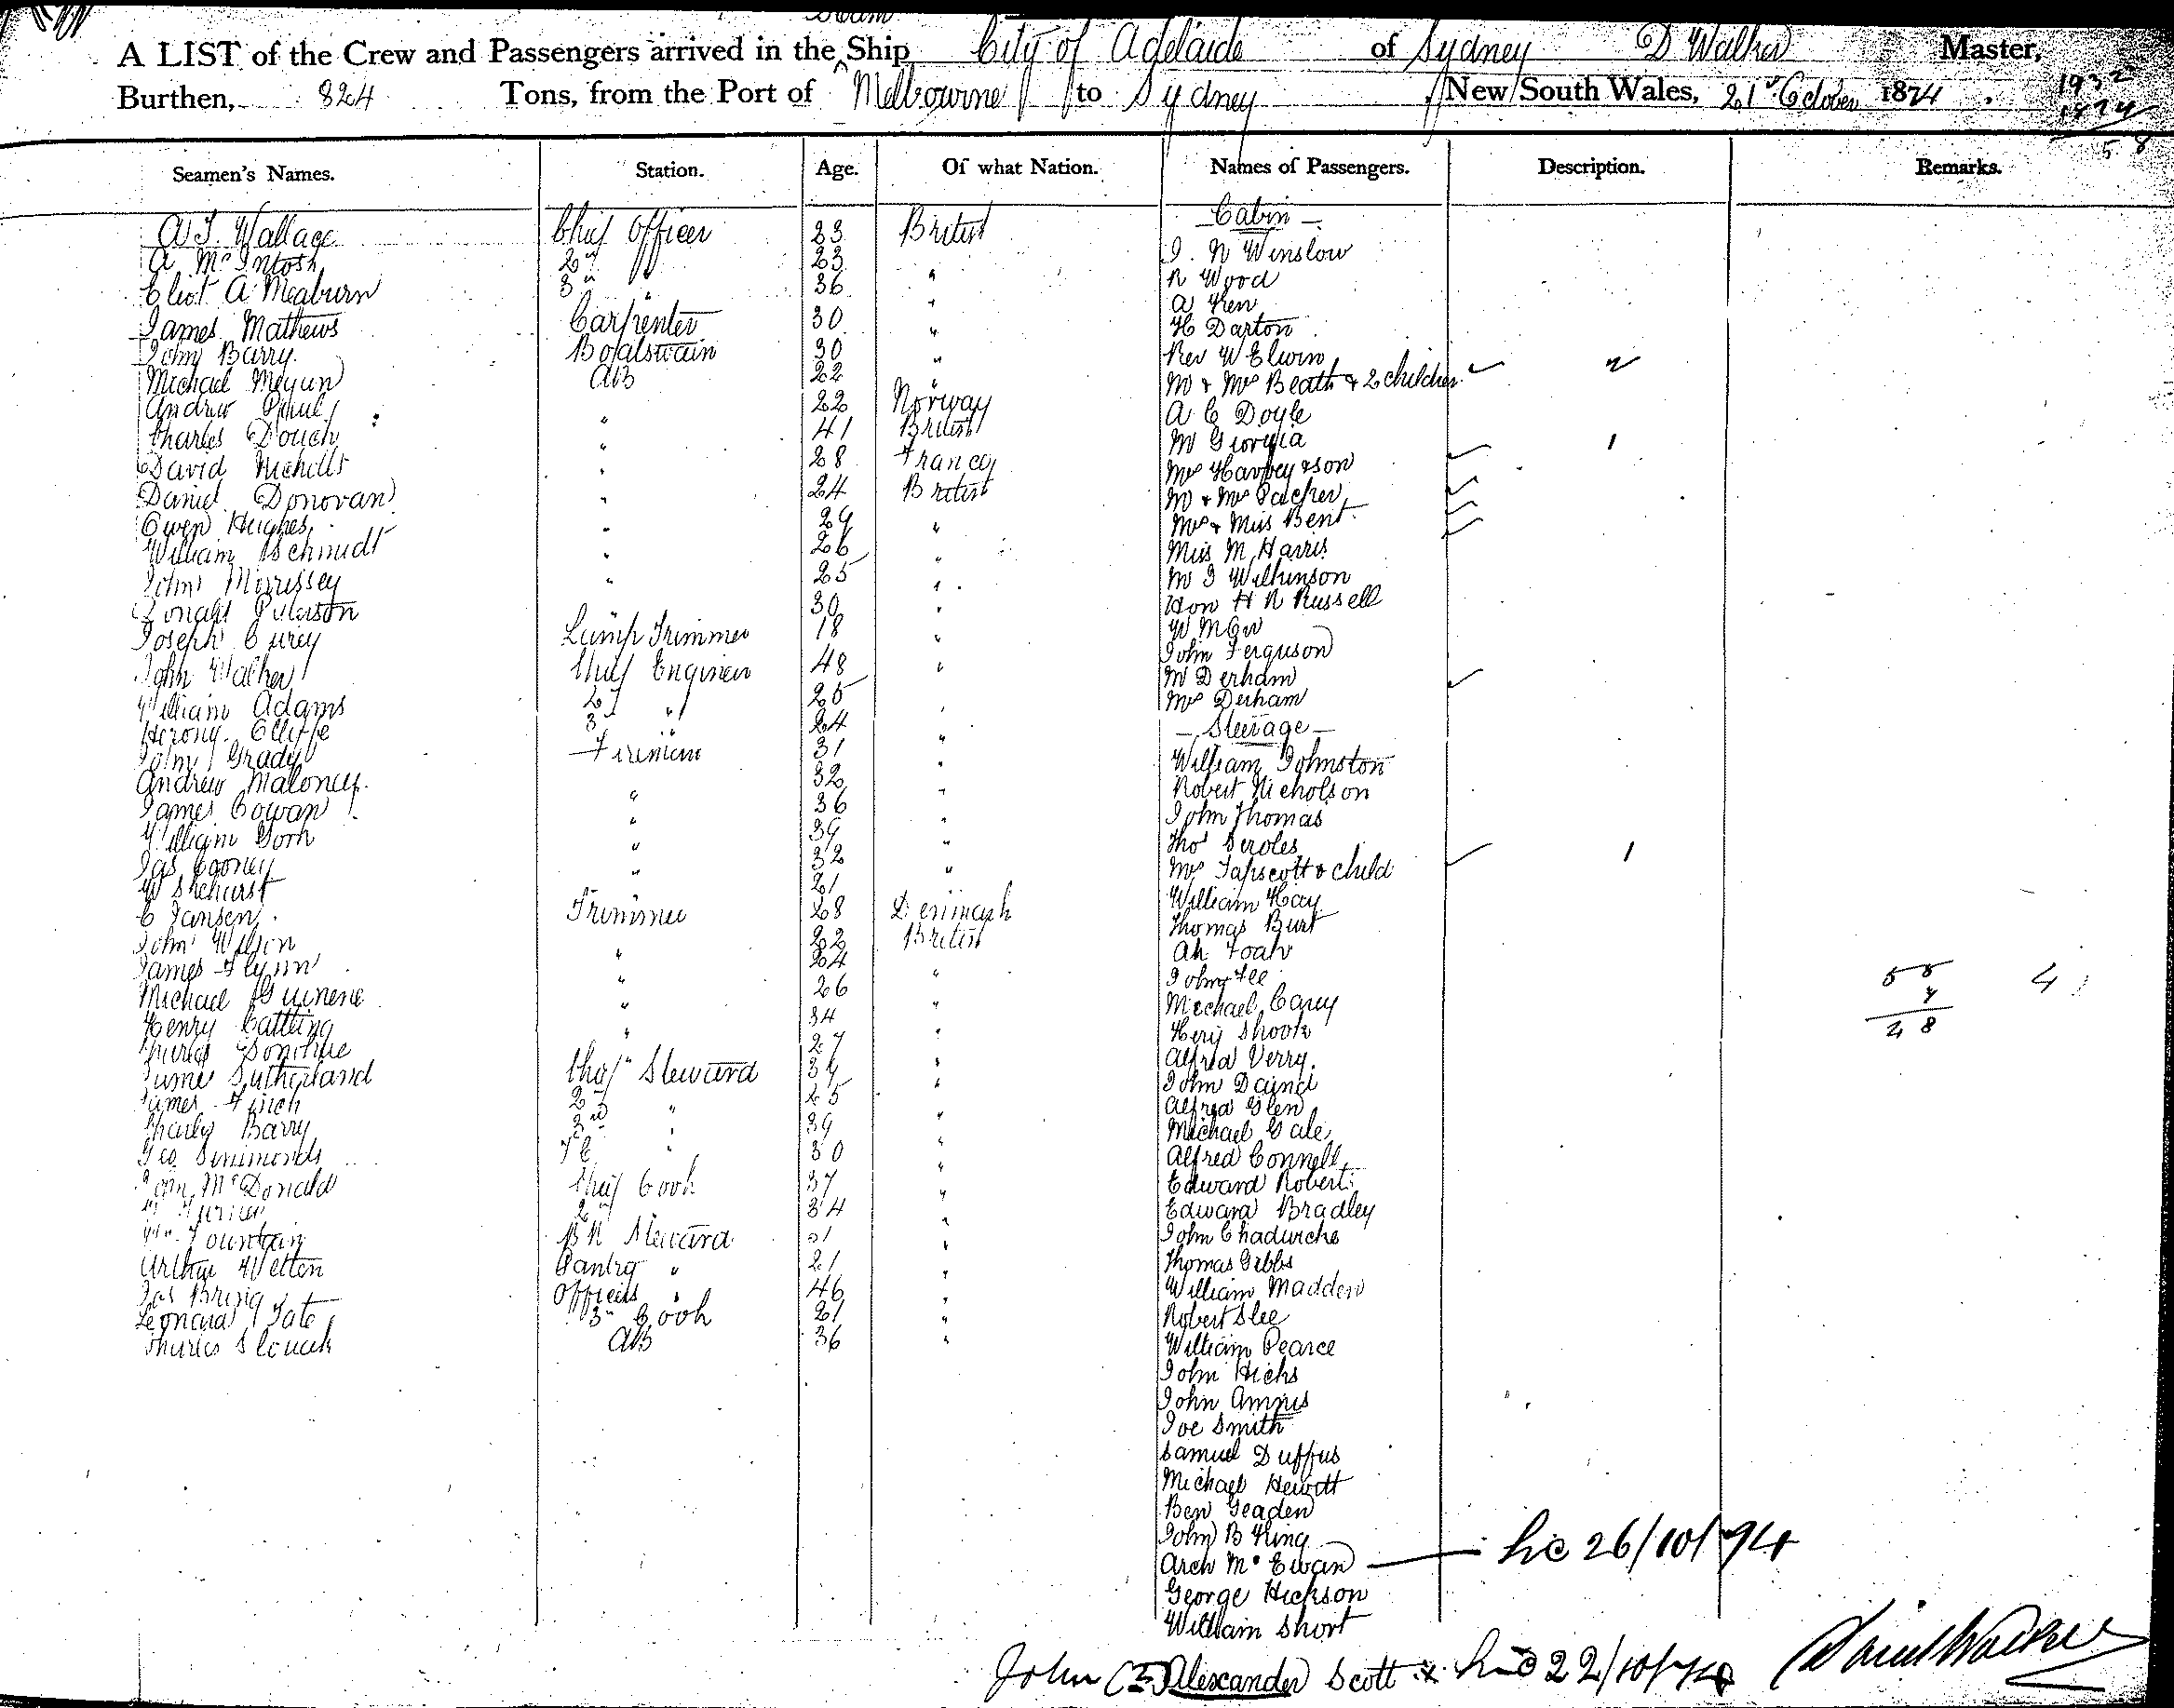 Steam
A LIST of the Crew and Passengers arrived in the Ship City of Adelaide of Sydney D Walker Master,
Burthen, 824 Tons, from the Port of Melbourne to Sydney New South Wales, 21st October 1874
1932
1874
58
Seamen's Names. Station. Age. Of what Nation. Names of Passengers. Description. Remarks.
Cabin
A T. Wallace Chief Officer 23 British
I. N Winslow
A McIntosh 2nd " 23
R Wood
A. Meaburn 3rd " 36 "
A Ken
James Mathews Carpenter 30 "
H Darton
John Barry Boatswain 30 "
Rev W Elwin
Michael AB 22 "
Mr & Mrs Beath & 2 children
Andrew " 22 Norway
A C Doyle
Charles " 41 British
Mr Giorgia 1
David Nicholls " 28 France
Mrs Harvey & son
Daniel Donovan " 24 British
Mr & Mrs
Owen Hughes " 29 "
Mrs & Miss Bent
William Schmidt " 26 "
Miss M Harris
John Morrissey " 25 "
Mr J Wilkinson
Donald Peterson " 30 "
Hon H R Russell
Joseph Lamp Trimmer 18 "
W
John Walker Chief Engineer 48 "
John Ferguson
Mr Derham
William Adams 2nd " 25
Mrs Derham
3rd " 24
Steerage
John Grady Fireman 31 "
William Johnston
Andrew Maloney " 32 "
Robert Nicholson
James Cowan " 36 "
John Thomas
William " 39 "
Thos
Jas Cooney " 32 "
Mrs Tapscott & child 1
W " 21
William Hay
C Jansen Trimmer 28 Denmark
Thomas Burt
John Wilson " 22 British
Ah
James Flynn " 24 "
John Fee
Michael " 26 "
Michael Carey
Henry Catling " 34 "
Shook
27 "
Alfred Verry
James Sutherland Chief Steward 34 "
John
James Finch 2nd " 25 "
Alfred Glen
Charles Barry 3rd " 39 "
Michael Gale
Geo Simmonds " 30 "
Alfred Connell
John McDonald Chief Cook 37 "
Edward Roberts
2nd " 34 "
Edward Bradley
Wm Fountain Steward "
John Chadwicke
Arthur Wetton Pantry " 21 "
Thomas Gibbs
Jas Officers " 46 "
William Madden
Leonard Tate 3rd Cook 21 "
Robert Slee
Charles AB 36 "
William Pearce
John Hicks
John
Joe Smith
Samuel Duffus
Michael Hewitt
Ben Geaden
John B King
Arch McEwan 26/10/74
George Hickson
William Short
John Alexander Scott 22/10/74
Daniel Walker